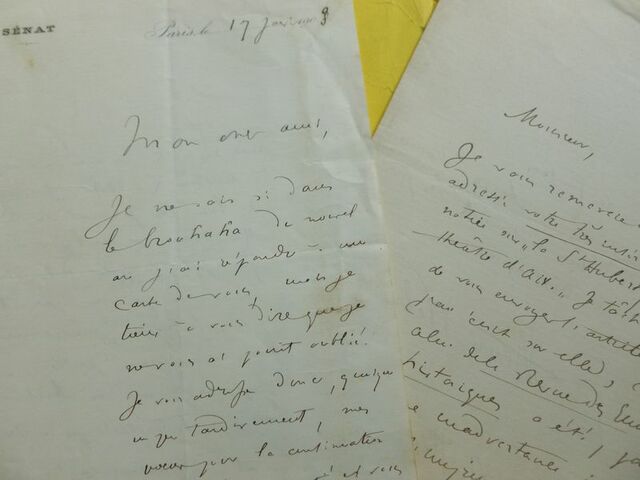 SÉNAT
Paris, le 17 Janvier
Mon cher ami,
Je ne sais si dans
le brouhaha du nouvel
an j'ai répondu à une
carte de vous, mais je
tiens à vous dire que je
ne vous ai point oublié.
Je vous adresse donc, quoique
un peu tardivement, mes
voeux pour la continuation
et vous
Monsieur,
Je vous remercie
adressé votre très
notice sur la St Hubert
théâtre d'Aix. Je
de vous envoyer l'article
sur elle,
de la Revue des
historiques a été
inadvertance